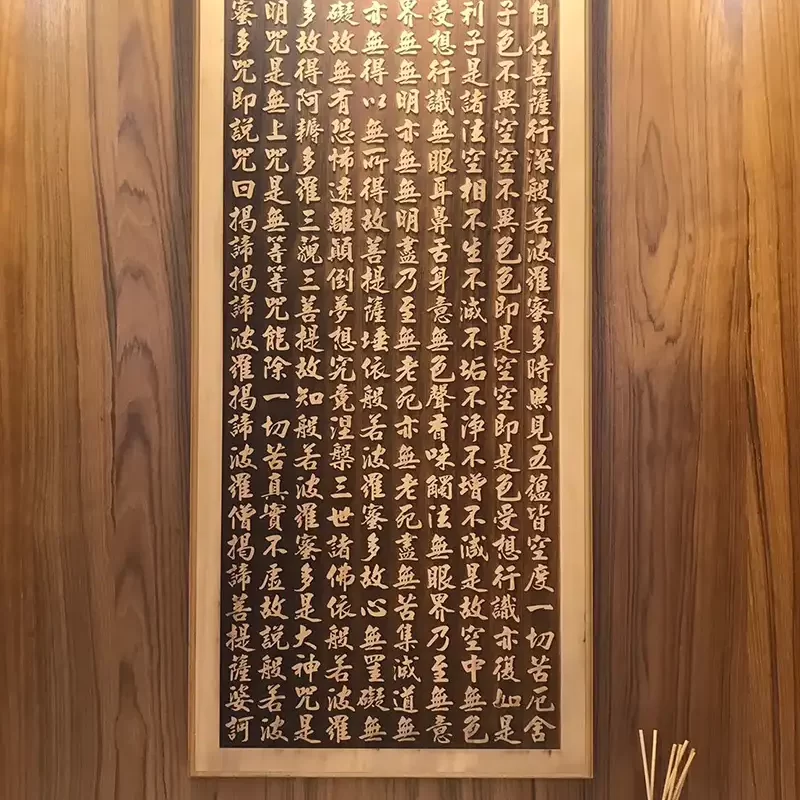 自在菩薩行深般若波羅蜜多時照見五蘊皆空度一切苦厄舍
子色不異空空不異色色即是空空即是色受想行識亦復如是
利子是諸法空相不生不滅不垢不淨不增不減是故空中無色
受想行識無眼耳鼻舌身意無色聲香味觸法無眼界乃至無意
界無無明亦無無明盡乃至無老死亦無老死盡無苦集滅道無
亦無得以無所得故菩提薩埵依般若波羅蜜多故心無罣礙無
礙故無有恐怖遠離顛倒夢想究竟涅槃三世諸佛依般若波羅
多故得阿耨多羅三藐三菩提故知般若波羅蜜多是大神咒是
明咒是無上咒是無等等咒能除一切苦真實不虛故說般若波
蜜多咒即說咒曰揭諦揭諦波羅揭諦波羅僧揭諦菩提薩婆訶